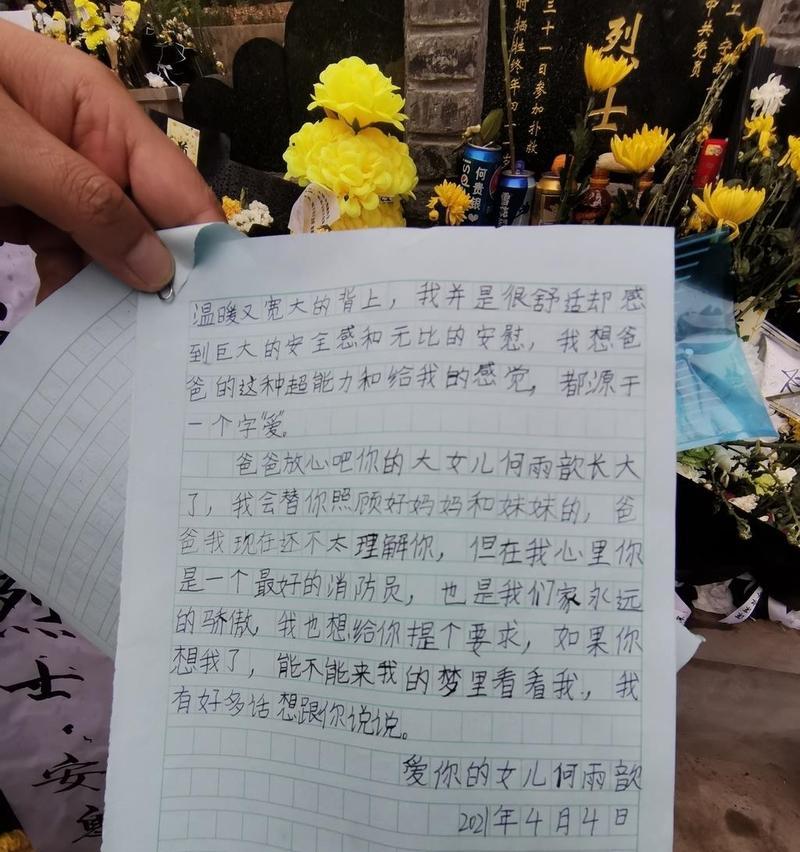 工
中共党员
烈士
三十一日参加扑救
时牺牲终年四
何贵银
雪花
温暖又宽大的背上，我并是很舒适却感
到巨大的安全感和无比的安慰，我想爸
爸的这种超能力和给我的感觉，都源于
一个字“爱”。
爸爸放心吧你的大女儿何雨歆长大
了，我会替你照顾好妈妈和妹妹的，爸
爸我现在还不太理解你，但在我心里你
是一个最好的消防员，也是我们家永远
的骄傲，我也想给你提个要求，如果你
想我了，能不能来我的梦里看看我，我
有好多话想跟你说说。
爱你的女儿何雨歆
2021年4月4日
烈士·安